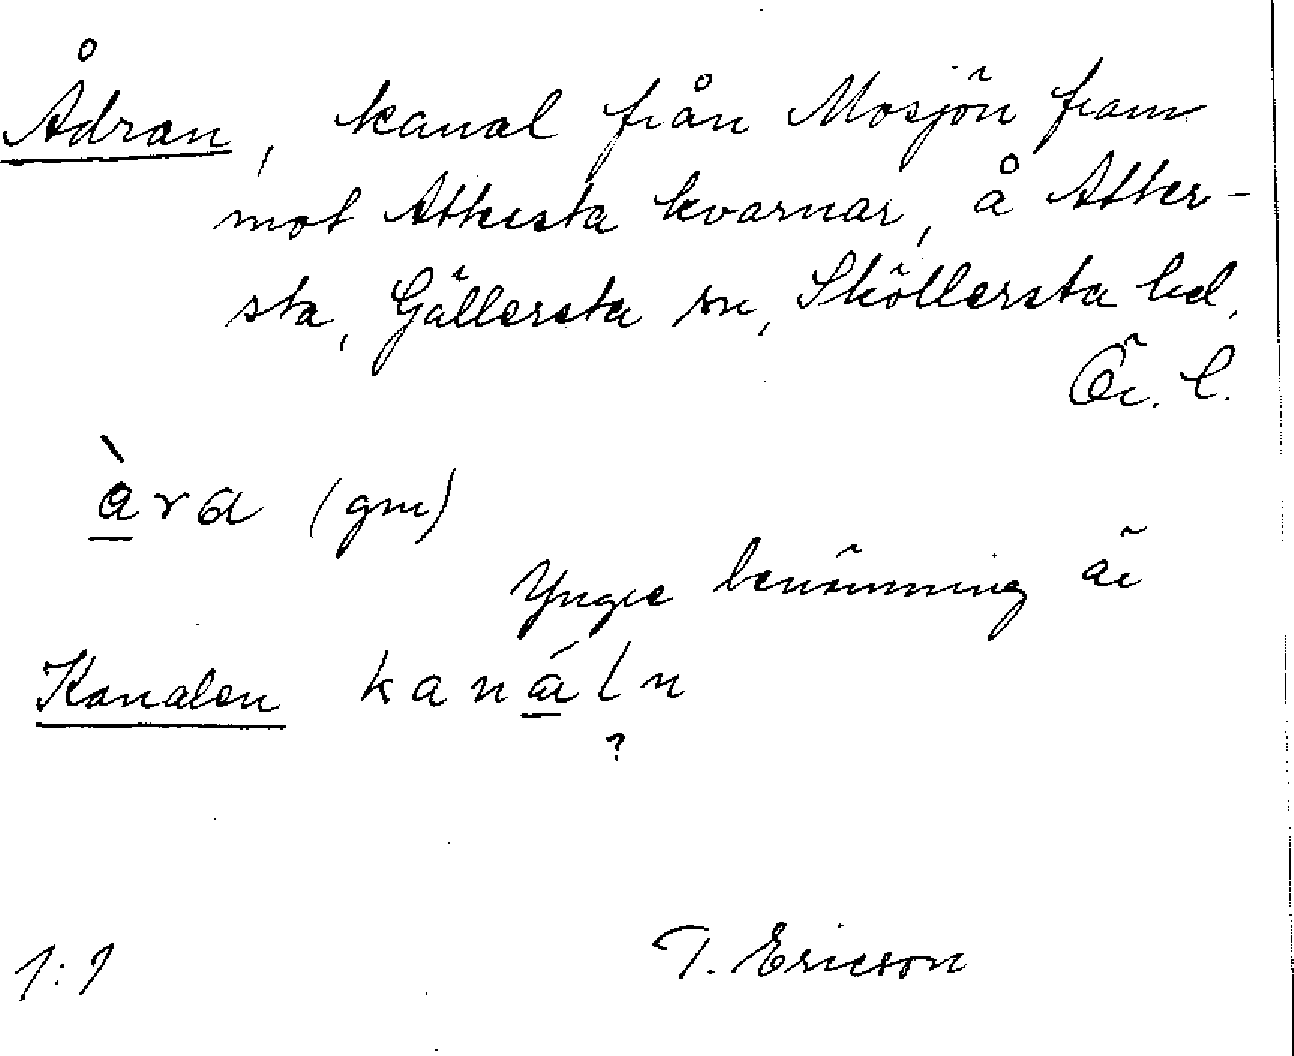 Ådran, kanal från Mosjön fram
mot Attersta kvarnar, å Atter-
sta, Gällersta sn, Sköllersta hd,
Ör. l.
àra (gm)
Yngre benämning är
Kanalen kanáln
?
1:1 T. Ericson